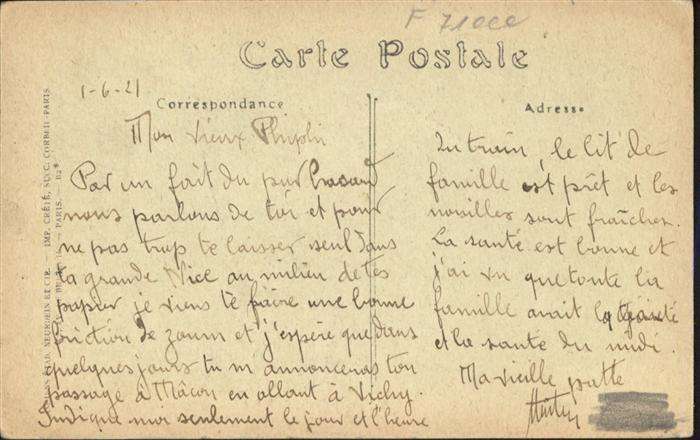 F 71000
Carte Postale
1-6-21
Correspondance
Mon vieux
Par un fait du pur hasard
nous parlons de toi et pour
ne pas trop te laisser seul dans
ta grande Nice au milieu de tes
papier je viens te faire une bonne
friction de et j'espère que dans
quelques jours tu m'annonceras ton
passage à Mâcon en allant à Vichy.
Indique moi seulement le jour et l'heure
Adresse
du train, le lit de
famille est prêt et les
nouilles sont fraîches.
La santé est bonne et
j'ai vu que toute la
famille avait la gaieté
et la santé du midi.
Ma vieille patte
IMP. CRÉTÉ, SUC. CORBEIL-PARIS.
PARIS.